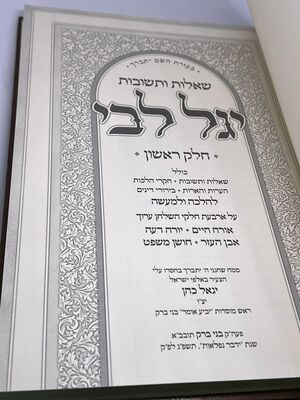 בעזרת השם יתברך
שאלות ותשובות
יגל לבי
חלק ראשון
כולל
שאלות ותשובות • חקרי הלכות
הערות והארות • בירורי דינים
להלכה ולמעשה
על ארבעת חלקי השלחן ערוך
אורח חיים • יורה דעה
אבן העזר • חושן משפט
ממה שחנני ה' יתברך בחסדו עלי
הצעיר באלפי ישראל
יגאל כהן
יצ"ו
ראש מוסדות "יביע אומר" בני ברק
פעה"ק בני ברק תובב"א
שנת "ידבר נפלאות", תשפ"ג לפ"ק